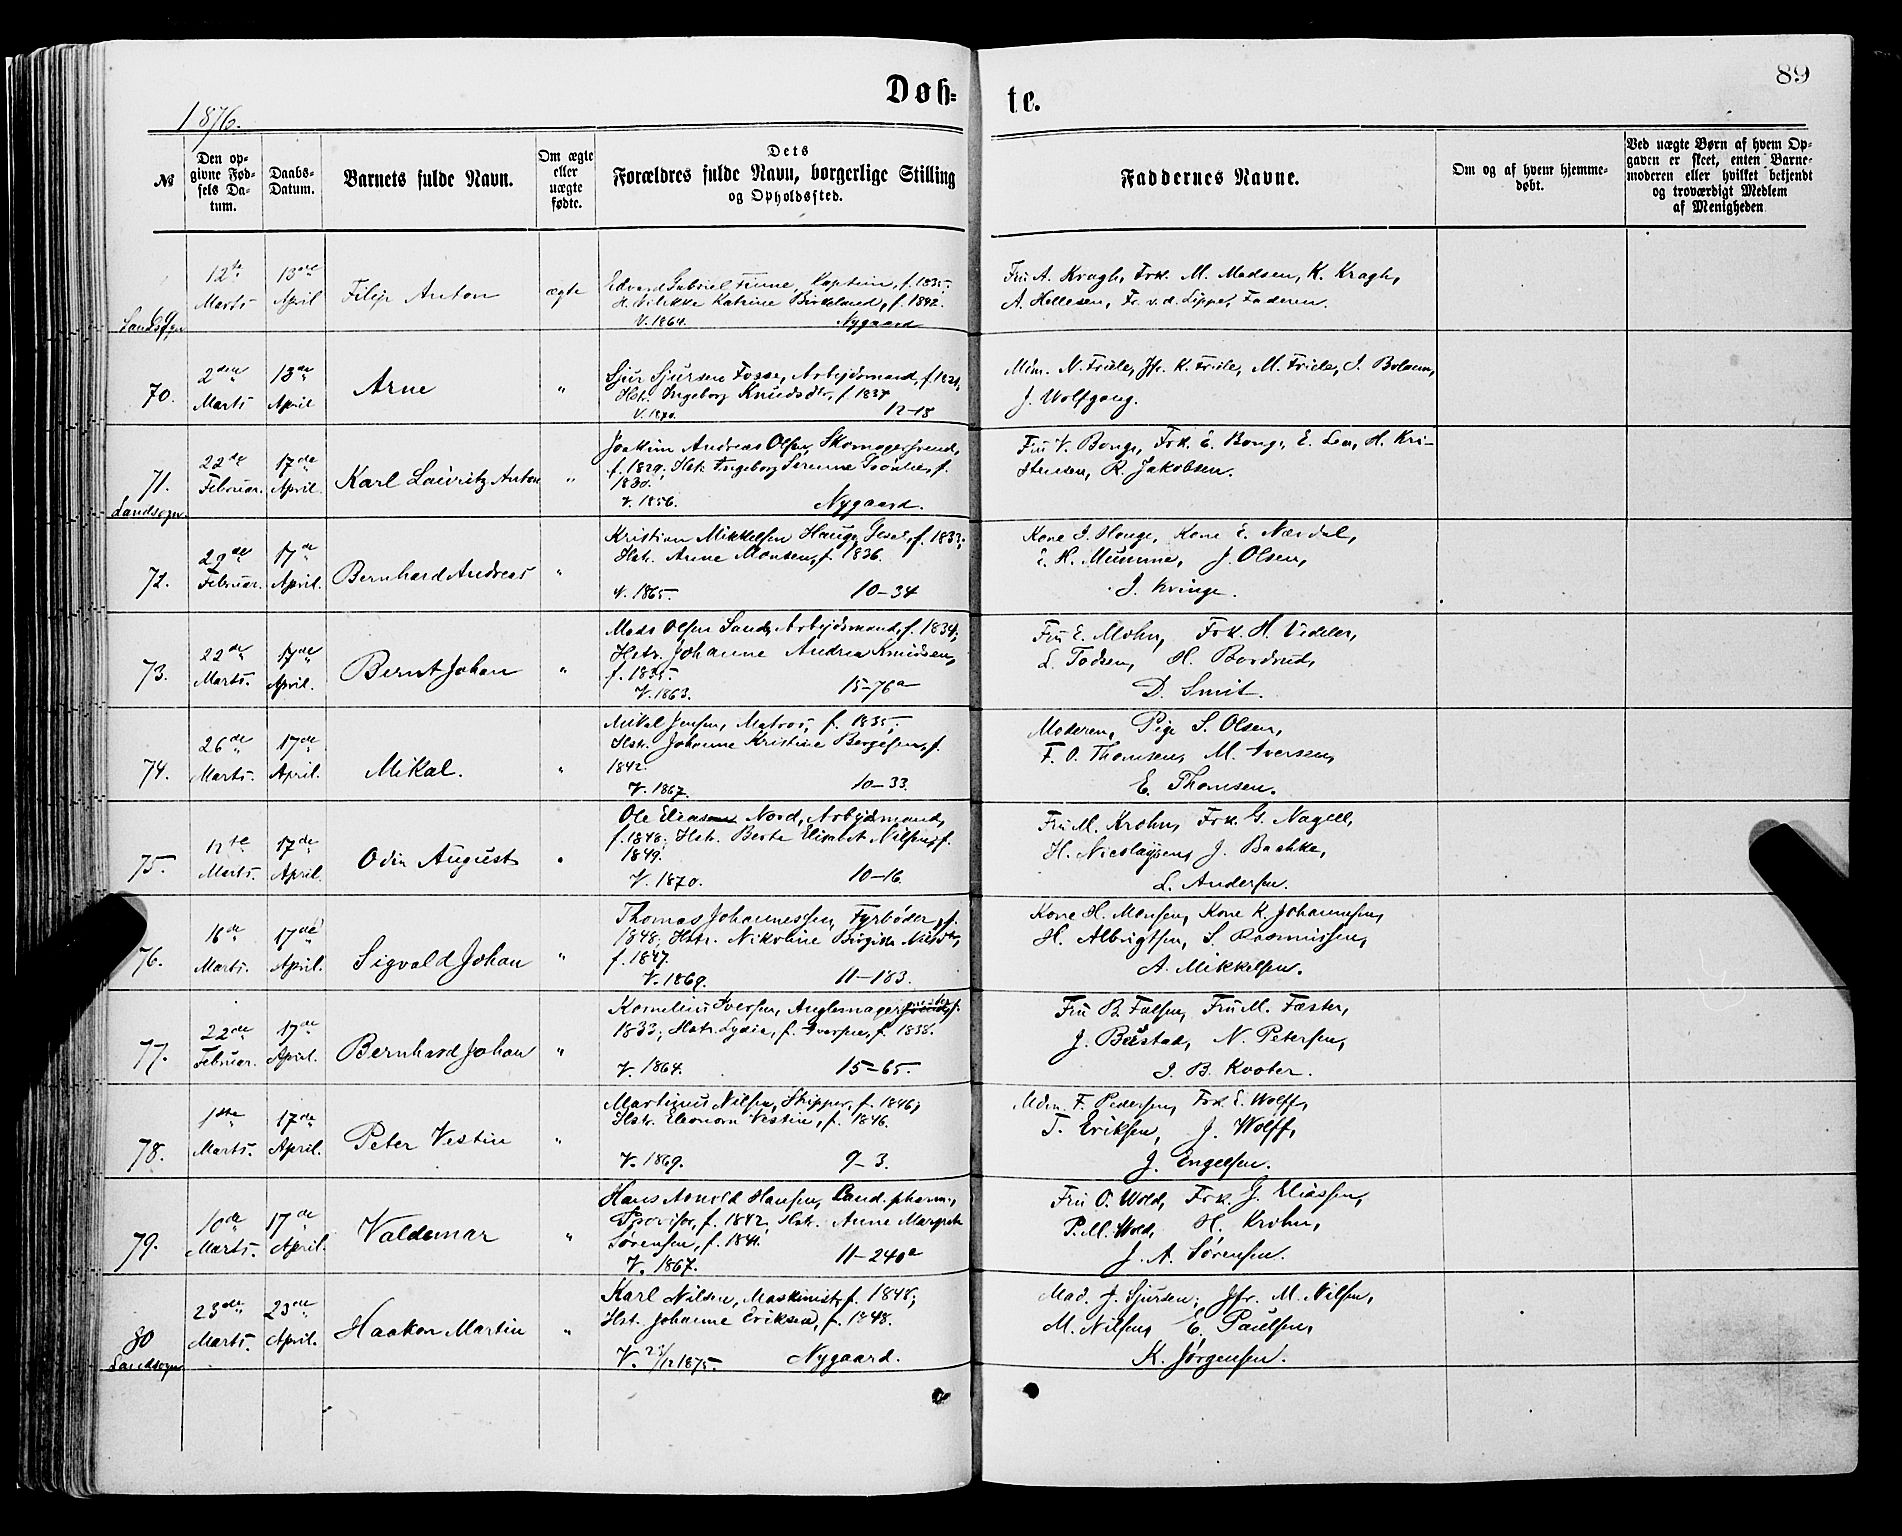 89
Døb=
te.
1876.
№
Den op-
givne Fød-
sels Da-
tum.
Daabs-
Datum.
Barnets fulde Navn.
Om ægte
eller
uægte
fødte.
Dets
Forældres fulde Navn, borgerlige Stilling
og Opholdssted.
Faddernes Navne.
Om og af hvem hjemme-
døbt.
Ved uægte Børn af hvem Op-
gaven er skeet, enten Barne-
moderen eller hvilket bekjendt
og troværdigt Medlem
af Menigheden
69
Landsogn
12te
Marts
13de
April
Filip Anton
ægte
Edvard Gabriel Finne, Kaptein, f. 1835;
Katrine Birkeland, f. 1842.
V. 1864. Nygaard
Fru A. Kragh, Frk. M. Madsen, K. Kragh,
A. Hellesen, Fr. v. d. Lippe, Faderen.
70.
2den
Marts
13de
April
Arne
"
Sjur Sjursen Fosse, Arbejdsmand, f. 1821,
Hstr. Ingeborg Knudsdtr, f 1837
V. 1870. 12-18
Mdm. N. Friele, Jfr. K. Friele, M. Friele,
J. Wolfgang.
71.
Landsogn.
22de
Februar.
17de
April.
Karl Lauritz Anton
"
Joakim Andreas Olsen, Skomagersvend,
f. 1829; Hstr. Ingeborg Serine f.
1830.
V. 1856. Nygaard.
Fru V. Bong, Frk. E. Bong, E. Lea, H. Kri-
stensen, R. Jakobsen.
72.
29de
Februar.
17de
April.
Bernhard Andreas
"
Kristian Mikkelsen Hauge, f. 1833;
Hstr. Anne Monsen, f. 1836.
V. 1865. 10-34
Kone I. Hauge, Kone E. Nærdal,
E. H. Mumme, J. Olsen,
J. Kvinge.
73.
22de
Marts.
17de
April.
Bernt Johan
"
Mads Olsen Sand, Arbejdsmand, f. 1834;
Hstr. Johanne Andrea Knudsen,
f. 1835.
V. 1863. 15-76a
Fru E. Mohn, Frk. H. Vedeler,
L. Todsen, H. Bordrud,
D. Smit.
74.
26de
Marts.
17de
April.
Mikal.
"
Mikal Jensen, Matros, f. 1835;
Hstr. Johanne Kristine Bergesen, f.
1842.
V. 1867. 10-33.
Moderen, Pige S. Olsen,
F. O. Thomsen, M. Iversen,
E. Thomsen.
75.
11te
Marts.
17de
April.
Odin August
"
Ole Eliassen Nord, Arbejdsmand,
f. 1848; Hstr. Berte Elisabet Nilsen, f.
1849.
V. 1870. 10-16.
Fru M. Krohn, Frk. G. Nagell,
H. Nicolaysen, J. Baahke,
L. Andersen.
76.
16de
Marts.
17de
April.
Sigvald Johan
"
Thomas Johannessen, Fyrbøder, f.
1848; Hstr. Nikoline Birgitte Nilsdtr,
f. 1847.
V. 1869. 11-183.
Kone H. Monsen, Kone K. Johannesen,
H. Albrigtsen, S. Rasmussen,
A. Mikkelsen.
77.
22de
Februar.
17de
April.
Bernhard Johan
"
Kornelius Iversen, Anglemager f.
1833; Hstr. Lydia, f. Iversen, f. 1838.
V. 1864. 15-65.
Fru B. Falsen, Fru M. Fæster,
J. Bustad, N. Petersen,
J. B. Kvater.
78.
1ste
Marts.
17de
April.
Peter Vestin
"
Martinus Nilsen, Skipper, f. 1846;
Hstr. Eleonora Vestin, f. 1846.
V. 1869. 9-3.
Mdm. F. Pedersen, Frk. E. Wolff,
T. Eriksen, J. Wolff,
J. Engelsen.
79.
10de
Marts.
17de
April.
Valdemar
"
Hans Arnold Hansen, Cand. pharm.,
Provisor, f. 1842; Hstr. Anne Margrete
Sørensen, f. 1841.
V. 1867. 11-240a
Fru O. Wold, Frk. J. Eliassen,
P. M. Wold, H. Krohn,
J. A. Sørensen.
80
Landsogn
23de
Marts.
23de
April.
Haakon Martin
"
Karl Nilsen, Maskinist, f. 1848;
Hst. Johanne Eriksen, f. 1848.
V. 1875. Nygaard.
Mad. J. Sjursen, Jfr. M. Nilsen,
M. Nilsen, E. Paulsen,
K. Jørgensen.